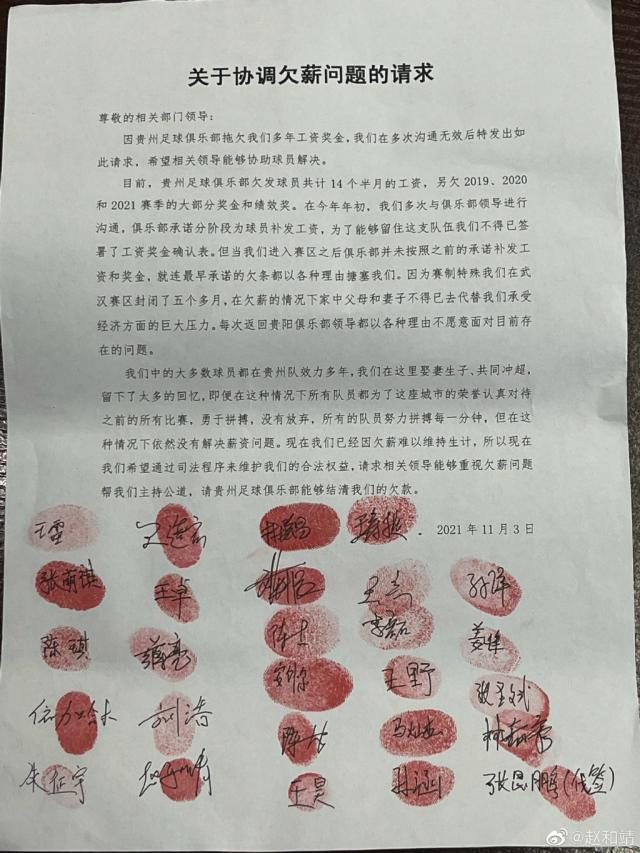 关于协调欠薪问题的请求
尊敬的相关部门领导：
因贵州足球俱乐部拖欠我们多年工资奖金，我们在多次沟通无效后特发出如
此请求，希望相关领导能够协助球员解决。
目前，贵州足球俱乐部欠发球员共计 14 个半月的工资，另欠 2019、2020
和 2021 赛季的大部分奖金和绩效奖。在今年年初，我们多次与俱乐部领导进行
沟通，俱乐部承诺分阶段为球员补发工资，为了能够留住这支队伍我们不得已签
署了工资奖金确认表。但当我们进入赛区之后俱乐部并未按照之前的承诺补发工
资和奖金，就连最早承诺的欠条都以各种理由搪塞我们。因为赛制特殊我们在武
汉赛区封闭了五个多月，在欠薪的情况下家中父母和妻子不得已去代替我们承受
经济方面的巨大压力。每次返回贵阳俱乐部领导都以各种理由不愿意面对目前存
在的问题。
我们中的大多数球员都在贵州队效力多年，我们在这里娶妻生子、共同冲超，
留下了太多的回忆，即便在这种情况下所有队员都为了这座城市的荣誉认真对待
之前的所有比赛，勇于拼搏，没有放弃，所有的队员努力拼搏每一分钟，但在这
种情况下依然没有解决薪资问题。现在我们已经因欠薪难以维持生计，所以现在
我们希望通过司法程序来维护我们的合法权益，请求相关领导能够重视欠薪问题
帮我们主持公道，请贵州足球俱乐部能够结清我们的欠款。
2021 年 11 月 3 日
张萌琪 王卓
陈琪 李磊 姜维
王野
刘涛
朱征宇 王昊 张思鹏（代签）
@赵和靖